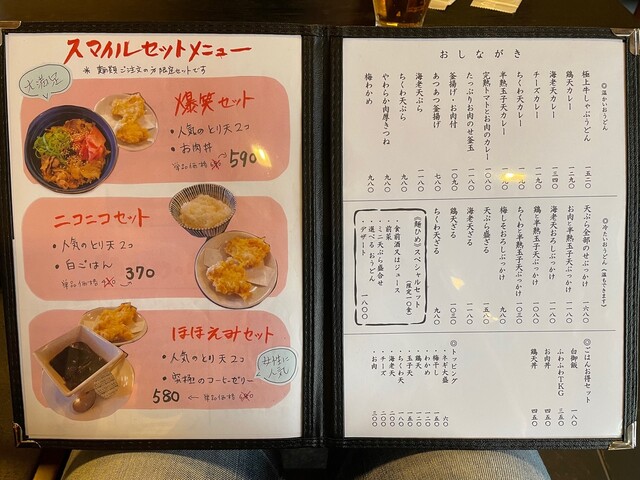 スマイルセットメニュー
* 麺類ご注文の方限定セットです
大満足
爆笑セット
・人気のとり天2コ
・お肉丼
単品価格
590
ニコニコセット
・人気のとり天2コ
・白ごはん
単品価格
370
ほほえみセット
・人気のとり天2コ
・究極のコーヒーゼリー
女性に人気
580 ← 単品価格
おしながき
◎温かいおうどん
極上牛しゃぶうどん 一五二〇
鶏天カレー 一二九〇
海老天カレー 一三四〇
チーズカレー 一一九〇
ちくわ天カレー 一一九〇
半熟玉子天カレー
完熟トマトとお肉のカレー
たっぷりお肉のせ釜玉 一一九〇
釜揚げ・お肉付 一〇九〇
あつあつ釜揚げ 七八〇
海老天ぷら 一一八〇
ちくわ天ぷら 九八〇
やわらか肉厚きつね 九八〇
梅わかめ 九八〇
◎冷たいおうどん(温もできます)
天ぷら全部のせぶっかけ 一六八〇
お肉と半熟玉子天ぶっかけ
海老天おろしぶっかけ
鶏と半熟玉子天ぶっかけ
ちくわと半熟玉子天ぶっかけ
梅しそおろしぶっかけ 九八〇
天ぷら盛ざる
海老天ざる
鶏天ざる
ちくわ天ざる 九八〇
《麺ひめ》スペシャルセット(限定一〇食)
・食前酒又はジュース
・前菜
・ミニ天ぷら盛合せ
・選べるおうどん
・デザート 一八〇〇
◎ごはんお得セット
白御飯 一八〇
ふわふわTKG 三五〇
お肉丼 四五〇
鶏天丼 四五〇
◎トッピング
・ネギ大盛 六〇
・梅干し
・わかめ
・鶏天
・玉子天
・ちくわ天
・海老天
・チーズ
・お肉 三〇〇